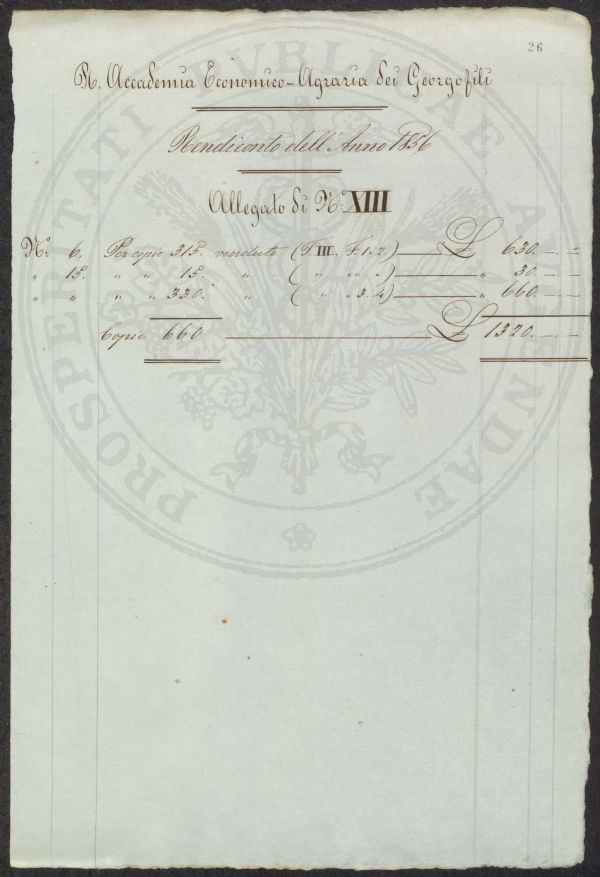 26
R. Accademia Economico-Agraria dei Georgofili
Rendiconto dell'Anno 1856
Allegato di N.° XIII
N.° 6. Per copie 315. vendute (T. III. F. 1. 2.) £ 630. — —
" 15. " " 15. " ( " " " ) " 30. — —
" " " " 330. " ( " " 3. 4.) " 660. — —
Copie 660 £ 1320. — —
PROSPERITATI PVBLICAE AVGENDAE